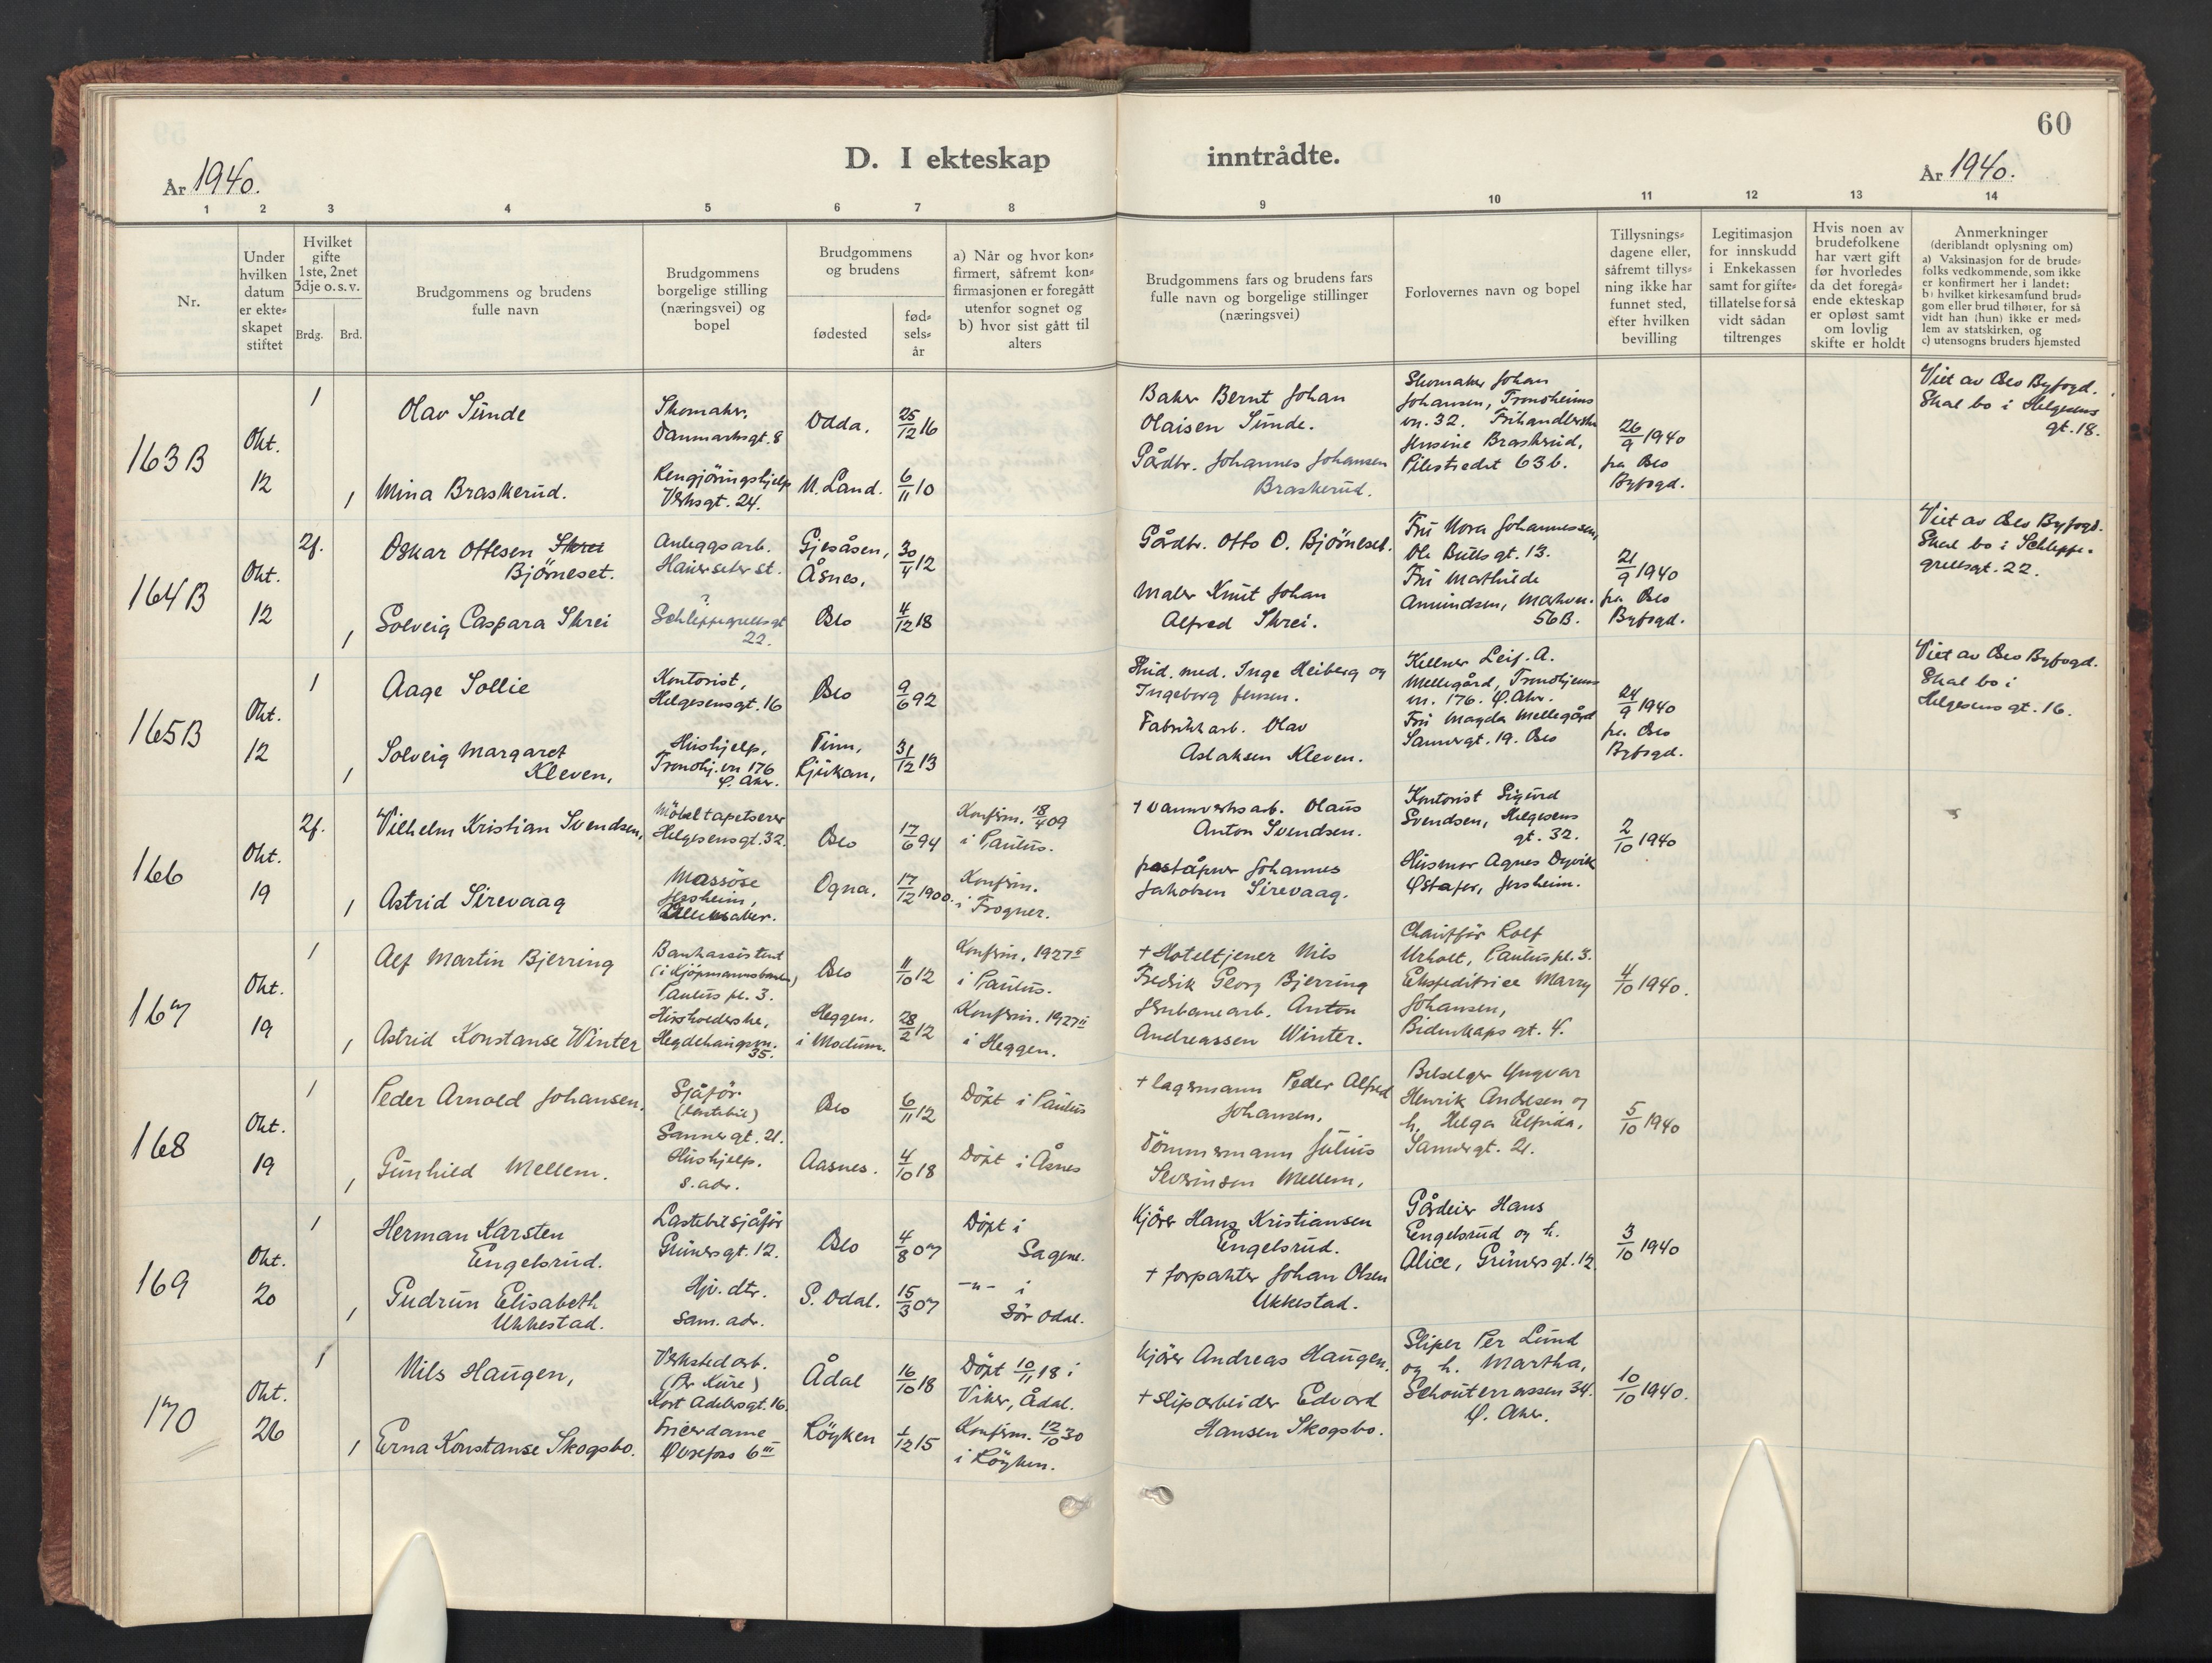 60
D. I ekteskap inntrådte.
År 1940.
År 1940.
1 2 3 4 5 6 7 8 9 10 11 12 13 14
Nr.
Under
hvilken
datum
er ekte-
skapet
stiftet
Hvilket
gifte
1ste, 2net
3dje o. s. v.
Brdg. Brd.
Brudgommens og brudens
fulle navn
Brudgommens
borgelige stilling
(næringsvei) og
bopel
Brudgommens
og brudens
fødested
fød-
sels-
år
a) Når og hvor kon-
firmert, såfremt kon-
firmasjonen er foregått
utenfor sognet og
b) hvor sist gått til
alters
Brudgommens fars og brudens fars
fulle navn og borgelige stillinger
(næringsvei)
Forlovernes navn og bopel
Tillysnings-
dagene eller,
såfremt tillys-
ning ikke har
funnet sted,
efter hvilken
bevilling
Legitimasjon
for innskudd
i Enkekassen
samt for gifte-
tillatelse for så
vidt sådan
tiltrenges
Hvis noen av
brudefolkene
har vært gift
før hvorledes
da det foregå-
ende ekteskap
er opløst samt
om lovlig
skifte er holdt
Anmerkninger
(deriblandt oplysning om)
a) Vaksinasjon for de brude-
folks vedkommende, som ikke
er konfirmert her i landet:
b) hvilket kirkesamfund brud-
gom eller brud tilhører, for så
vidt han (hun) ikke er med-
lem av statskirken, og
c) utensogns bruders hjemsted
163B
Okt.
12
1
Olav Sunde
Skomaker.
Danmarksgt. 8
Odda.
25/12 16
Baker Bernt Johan
Olaisen Sunde.
1
Mina Braskerud.
Rengjöringshjelp
Verksgt. 24.
N. Land.
6/11 10
Gårdbr. Johannes Johansen
Braskerud.
Skomaker Johan
Johansen, Trondheims
vn. 32.
Jensine Braskerud,
Pilestredet 63b.
26/9 1940
fra Oslo
Byfogd.
Viet av Oslo Byfogd.
Skal bo i Helgesens
gt. 18.
164B
Okt.
12
2f.
Oskar Ottesen Skrei
Björneset.
Anleggsarb.
Gjesåsen,
Åsnes.
30/4 12
Gårdbr. Otto O. Björneset.
1
Solveig Caspara Skrei
?
Schleppegrellsgt
22.
Oslo
4/12 18
Maler Knut Johan
Alfred Skrei.
Fru Nora Johannessen,
Ole Bullsgt. 13.
Fru Mathilde
Amundsen, Markvn.
56B.
21/9 1940
fra Oslo
Byfogd.
Viet av Oslo Byfogd.
Skal bo i Schleppe-
grellsgt. 22.
165B
Okt.
12
1
Aage Sollie
Kontorist,
Helgesensgt. 16
Oslo
9/6 92
Stud. med. Inge Heiberg og
Ingeborg Jensen.
1
Solveig Margaret
Kleven,
Hushjelp,
Trondhj. vn 176
Ø. Aker.
Tinn,
Rjukan,
31/12 13
Fabrikkarb. Olav
Aslaksen Kleven.
Kellner Leif. A.
Mellegård, Trondhjems
vn. 176. Ø. Aker.
Fru Magda Mellegård
Sannergt. 19. Oslo
24/9 1940
fra Oslo
Byfogd.
Viet av Oslo Byfogd.
Skal bo i
Helgesensgt. 16.
166
Okt.
19
2f.
Vilhelm Kristian Svendsen,
Möbeltapetserer
Helgesensgt. 32.
Oslo
17/6 94
Konfirm. 18/4 09
i Paulus.
+ Vannverksarb. Olaus
Anton Svendsen.
1
Astrid Sirevaag
Massöse
Jessheim,
Ullensaker.
Ogna.
17/12 1900.
Konfirm.
i Frogner.
poståpner Johannes
Jakobsen Sirevaag.
Kontorist Sigurd
Svendsen, Helgesens
gt. 32.
Husmor Agnes Dyvik
Jessheim.
2/10 1940
167
Okt.
19
1
Alf Martin Bjerring
Bankassistent
(i Kjöpmannsbanken)
Paulus pl. 3.
Oslo
11/10 12
Konfirm. 1927 II
i Paulus.
+ Hoteltjener Nils
Fredrik Georg Bjerring
1
Astrid Konstanse Winter
Husholderske,
Hegdehaugsvn.
35.
Heggen.
i Modum.
28/2 12
Konfirm. 1927 II
i Heggen.
Jernbanearb. Anton
Andreassen Winter.
Chauffør Rolf
Urholt, Paulus pl. 3.
Ekspeditrise Marry
Johansen,
Bidenkapsgt. 4.
4/10 1940.
168
Okt.
19
1
Peder Arnold Johansen.
Sjåför
(lastebil)
Sannergt. 21.
Oslo
6/11 12
Döpt i Paulus
+ lagermann Peder Alfred
Johansen,
1
Gunhild Mellem.
Hushjelp.
s. adr.
Aasnes.
4/10 18
Döpt i Åsnes
Tömmermann Julius
Severinsen Mellem,
Bilselger Yngvar
Henrik Andresen og
h. Helga Elfrida,
Sannergt. 21.
5/10 1940
169
Okt.
20
1
Herman Karsten
Engelsrud.
Lastebilsjåför
Grünersgt. 12.
Oslo
4/8 07
Döpt i
Sagene.
Kjörer Hans Kristiansen
Engelsrud.
1
Gudrun Elisabeth
Ukkestad.
Hjv. dtr.
Sam. adr.
S. Odal.
15/3 07
-"- i
Sör Odal.
+ forpakter Johan Olsen
Ukkestad.
Gårdeier Hans
Engelsrud og h.
Alice, Grünersgt. 12
3/10 1940
170
Okt.
26
1
Nils Haugen,
Verkstedarb.
(Per Kure)
Kort Adelersgt. 16.
Ådal
16/10 18
Döpt 10/11 18 i
Viker, Ådal.
Kjörer Andreas Haugen.
1
Erna Konstanse Skogsbo.
Frisérdame
Övrefoss 6 III
Röyken
1/12 15
Konfirm. 12/10 30
i Röyken.
+ Sliparbeider Edvard
Hansen Skogsbo.
Sliper Per Lund
og h. Martha,
Schouterrassen 34.
Ø. Aker.
10/10 1940.